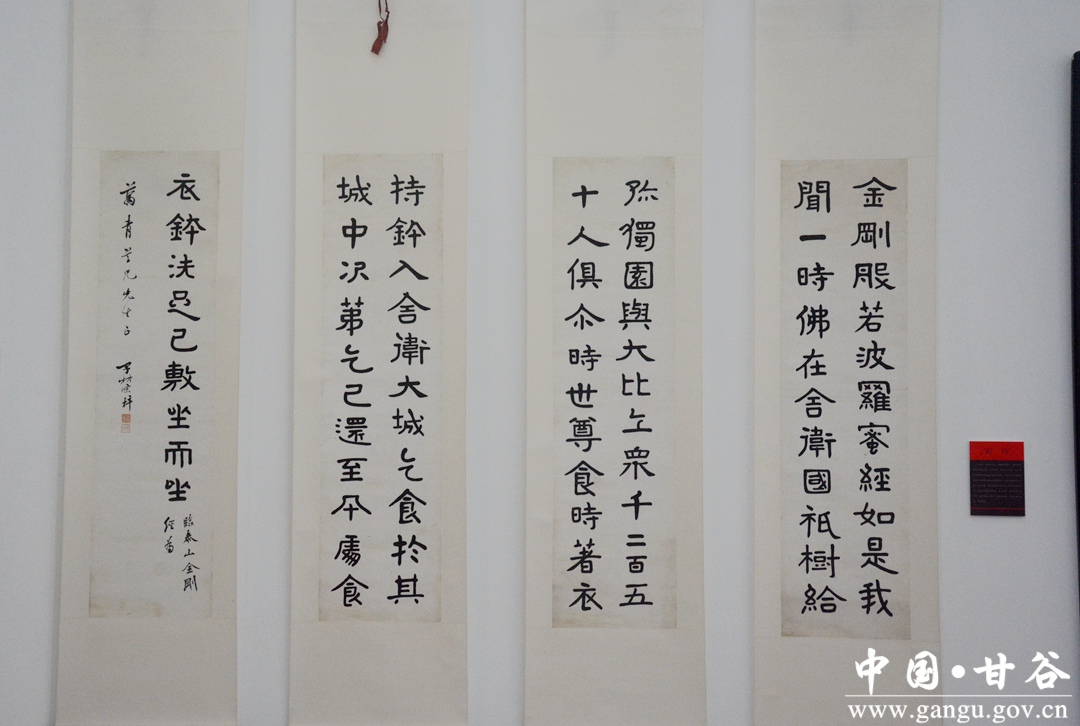 金剛般若波羅蜜經如是我
聞一時佛在舍衛國祇樹給
孤獨園與大比丘眾千二百五
十人俱尒時世尊食時著衣
持鉢入舍衛大城乞食於其
城中次第乞已還至本處食
衣鉢洗足已敷坐而坐
臨泰山金剛
經
萬青兄先生正
中国·甘谷
www.gangu.gov.cn